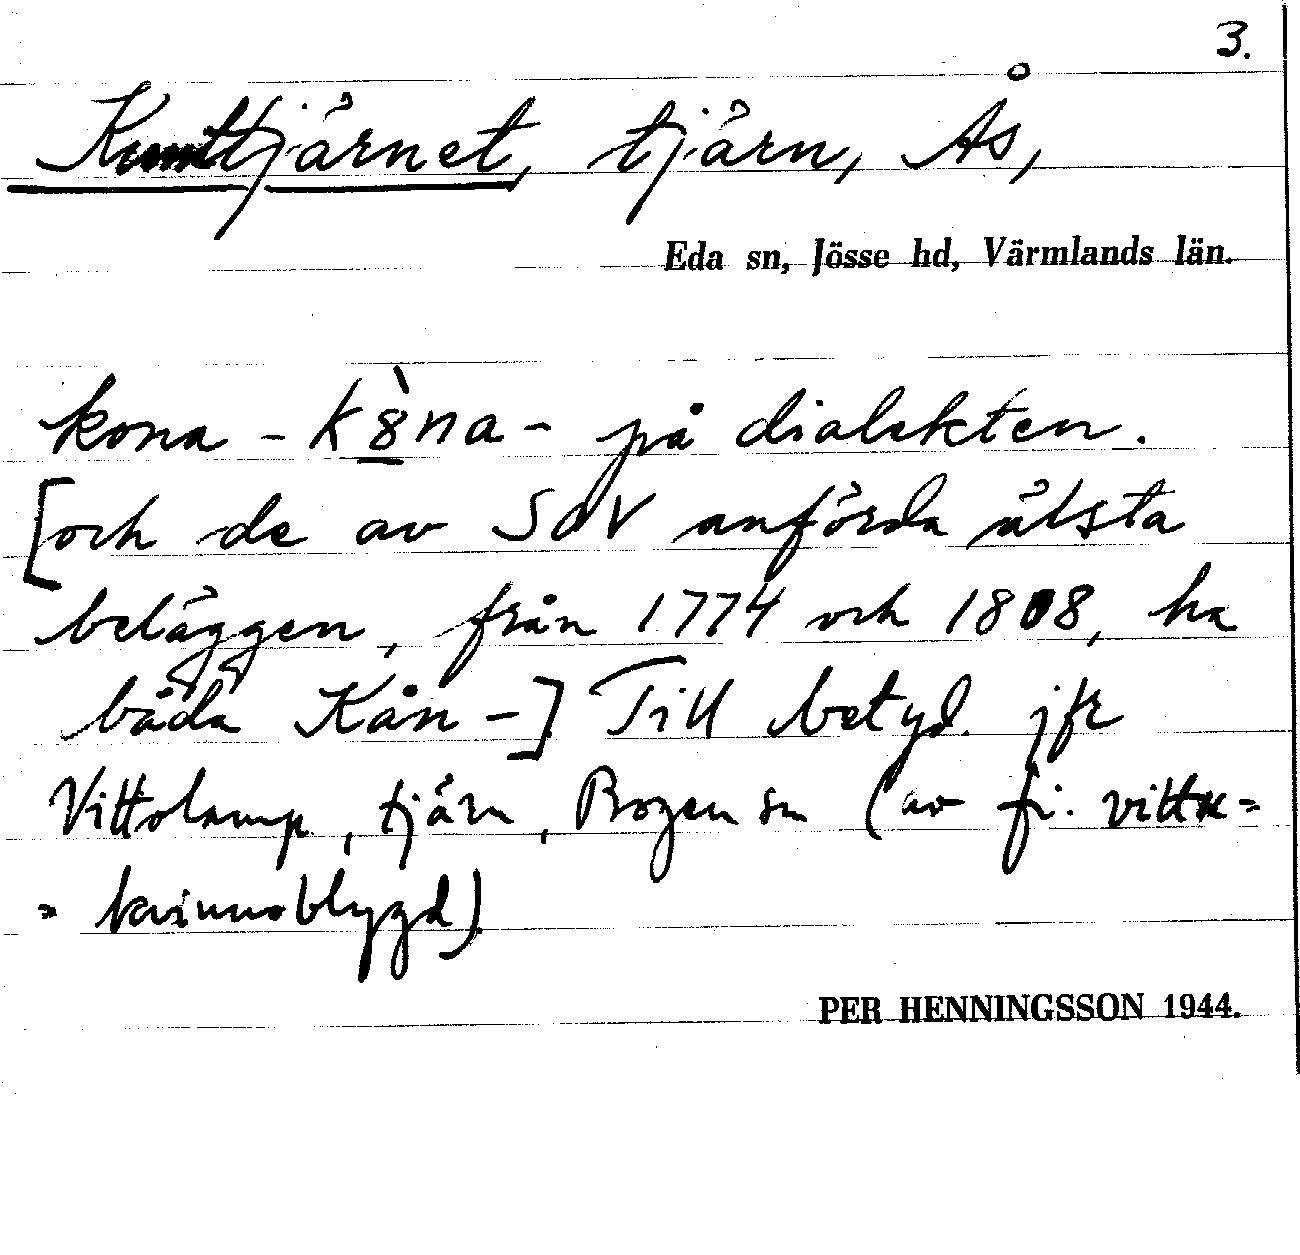 3.
Kunttjärnet, tjärn, Ås,
Eda sn, Jösse hd, Värmlands län.
kona - k8̀na - på dialekten.
[och de av SOV anförda älsta
beläggen, från 1774 och 1808, ha
båda Kån-] Till betyd. jfr
Vittolamp, tjärn, Bogen sn (av fi. vittu =
= kvinnoblygd)
PER HENNINGSSON 1944.